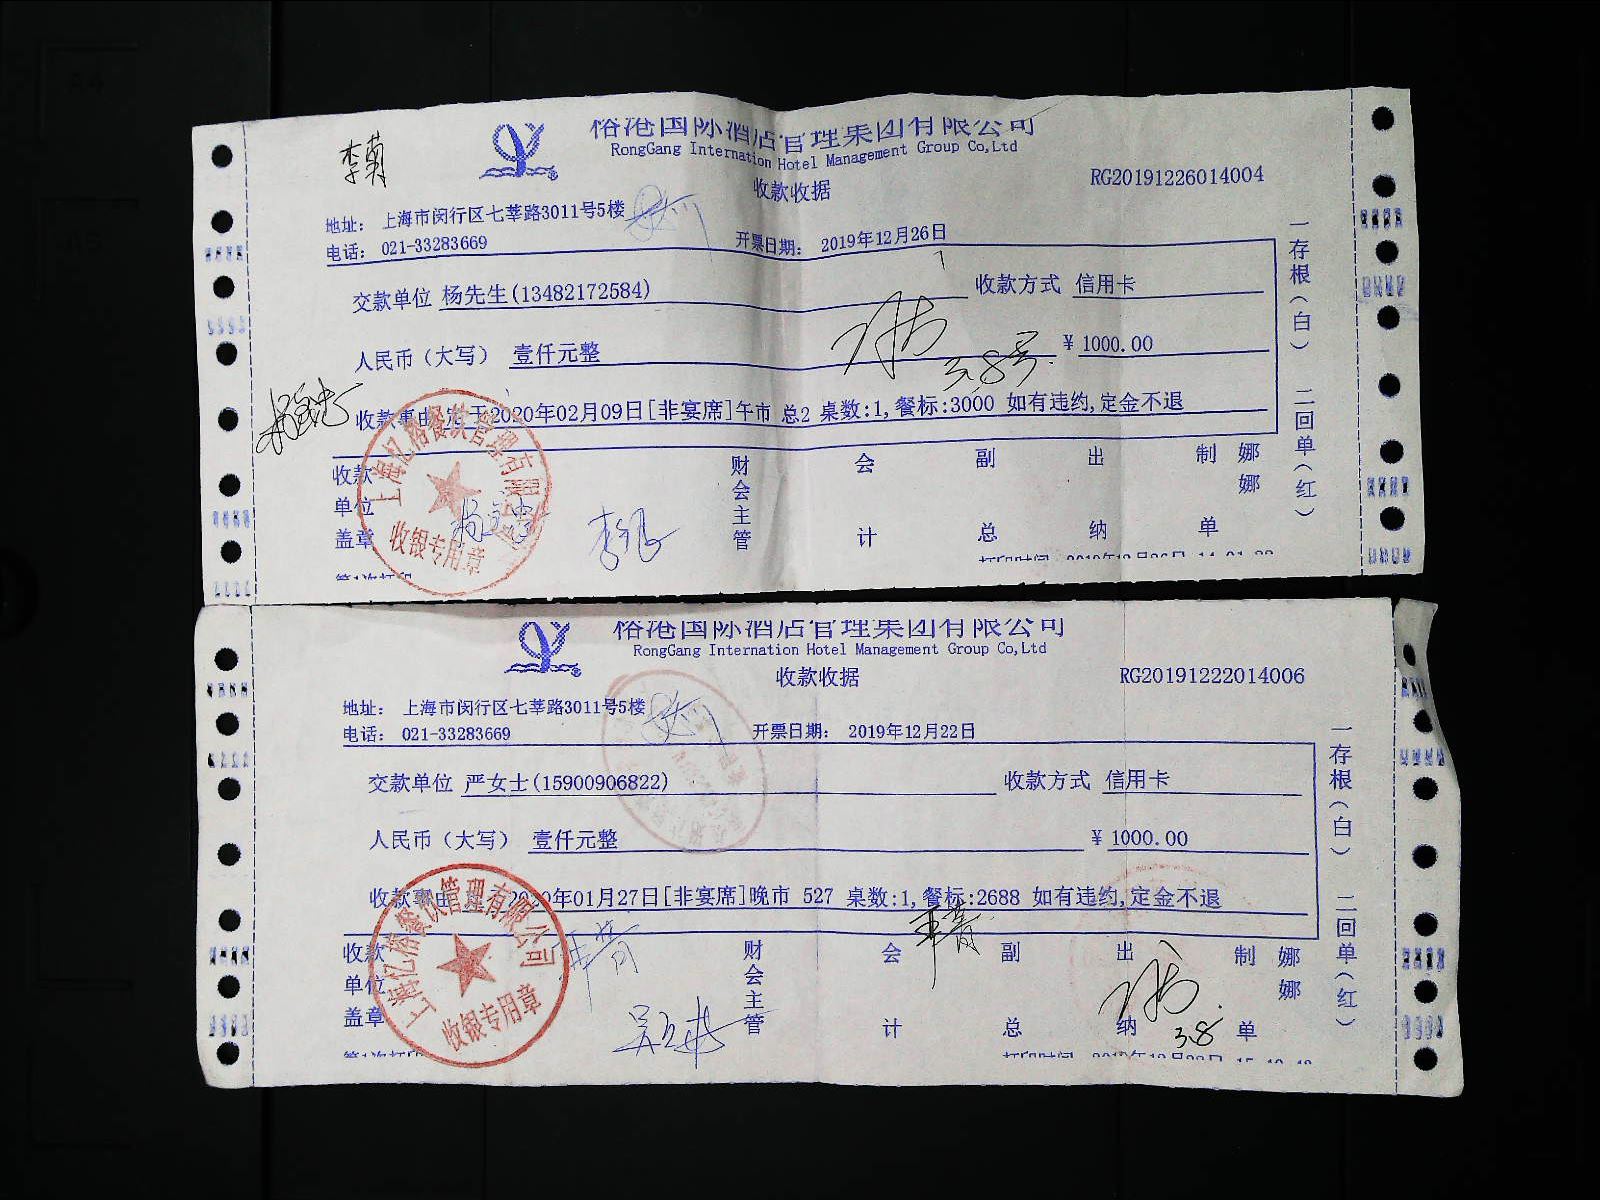 李菊
裕港国际酒店管理集团有限公司
RongGang Internation Hotel Management Group Co,Ltd
收款收据
RG20191226014004
地址: 上海市闵行区七莘路3011号5楼
电话: 021-33283669
开票日期: 2019年12月26日
交款单位 杨先生(13482172584)
收款方式 信用卡
人民币(大写) 壹仟元整
¥ 1000.00
3.8号
收款事由 定于2020年02月09日[非宴席]午市 总2 桌数:1,餐标:3000 如有违约,定金不退
收款单位盖章
财会主管
会计
副总
出纳
制单
娜娜
一存根(白) 二回单(红)
上海忆裕餐饮管理有限公司
收银专用章
第1次打印
打印时间 2019年12月26日 14:01:22
裕港国际酒店管理集团有限公司
RongGang Internation Hotel Management Group Co,Ltd
收款收据
RG20191222014006
地址: 上海市闵行区七莘路3011号5楼
电话: 021-33283669
开票日期: 2019年12月22日
交款单位 严女士(15900906822)
收款方式 信用卡
人民币(大写) 壹仟元整
¥ 1000.00
收款事由 2020年01月27日[非宴席]晚市 527 桌数:1,餐标:2688 如有违约,定金不退
收款单位盖章
财会主管
会计
副总
出纳
制单
娜娜
3.8
一存根(白) 二回单(红)
上海忆裕餐饮管理有限公司
收银专用章
第1次打印
打印时间 2019年12月22日